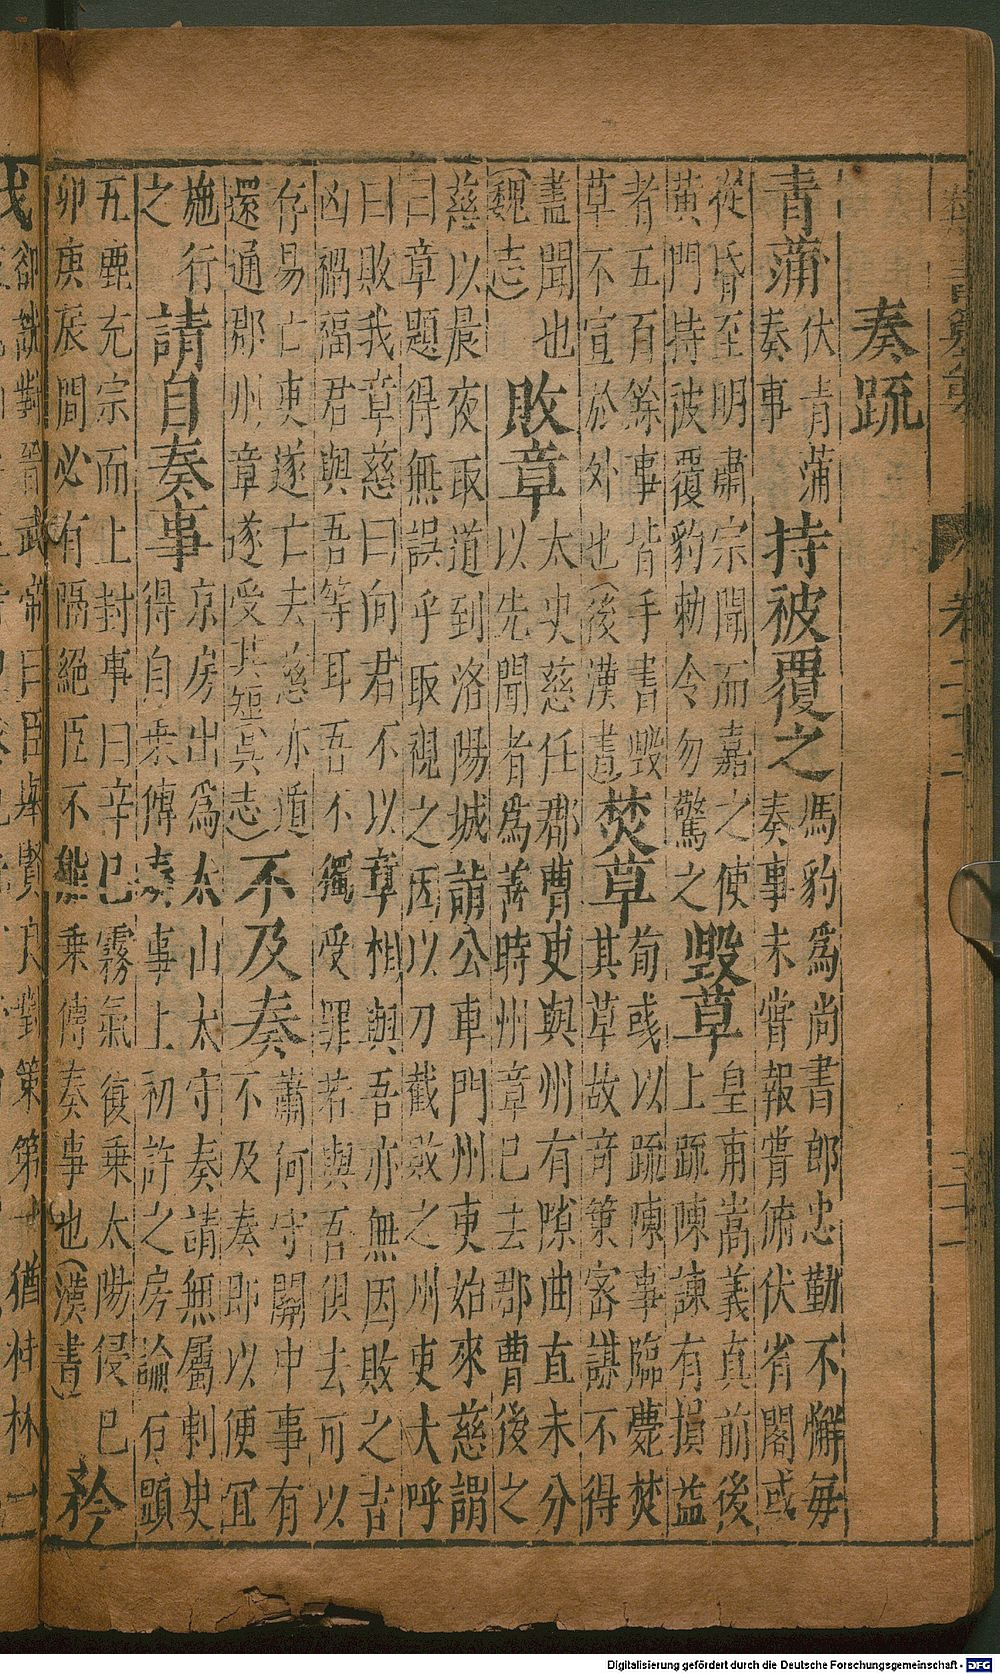 奏疏
青蒲
伏青蒲
奏事
持被覆之
馮豹為尚書郎忠勤不懈毎
奏事未嘗報嘗俯伏省閣或
從昏至明肅宗聞而嘉之使
黃門持被覆豹勅令勿驚之
毀草
皇甫嵩義真前後
上疏陳諫有損益
者五百餘事皆手書毀
草不宣於外也(後漢書)
焚草
荀彧以疏陳事臨薨焚
其草故奇策密謀不得
盖聞也
(魏志)
敗章
太史慈任郡曹吏與州有隙曲直未分
以先聞者為善時州章已去郡曹後之
慈以晨夜取道到洛陽城詣公車門州吏始來慈謂
曰章題得無誤乎取視之因以刀截敗之州吏大呼
曰敗我章慈曰向君不以章相與吾亦無因敗之吉
凶禍福君與吾等耳吾不獨受罪若與吾俱去可以
存易亡吏遂亡去慈亦遁
還通郡州章遂受其短(吳志)
不及奏
蕭何守關中事有
不及奏即以便冝
施行
之
請自奏事
京房出為太山太守奏請無屬刺史
得自乗傳奏事上初許之房論石顯
五鹿充宗而上封事曰辛巳霧氣復乗太陽侵巳
卯庚辰間必有隔絕臣不能乗傳奏事也(漢書)
矜
伐
郤詵對晉武帝曰臣舉賢良對策第一猶桂林一
Digitalisierung gefördert durch die Deutsche Forschungsgemeinschaft - DFG